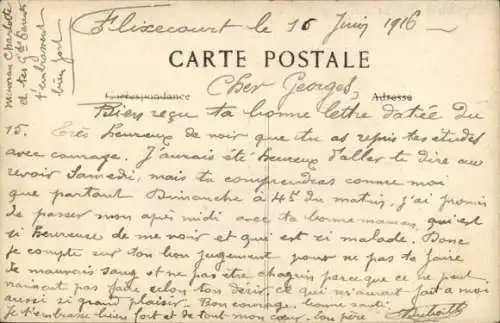 Flixecourt le 16 Juin 1916
CARTE POSTALE
Correspondance
Adresse
Cher Georges,
Bien reçu ta bonne lettre datée du
15. Très heureux de voir que tu as repris tes études
avec courage. J'aurais été heureux d'aller te dire au
revoir Samedi, mais tu comprendras comme moi
que partant Dimanche à 4h du matin, j'ai promis
de passer mon après midi avec ta bonne maman, qui est
si heureuse de me voir et qui est si malade. Donc
je compte sur ton bon jugement pour ne pas te faire
de mauvais sang et ne pas être chagrin parce que ce ne peut
pas faire selon ton désir ce qui m'aurait fait à moi
aussi si grand plaisir. Bon courage, bonne santé.
je t'embrasse bien fort et de tout mon cœur. ton père
Charlotte
et tes Gds Parents
t'embrassent
bien fort